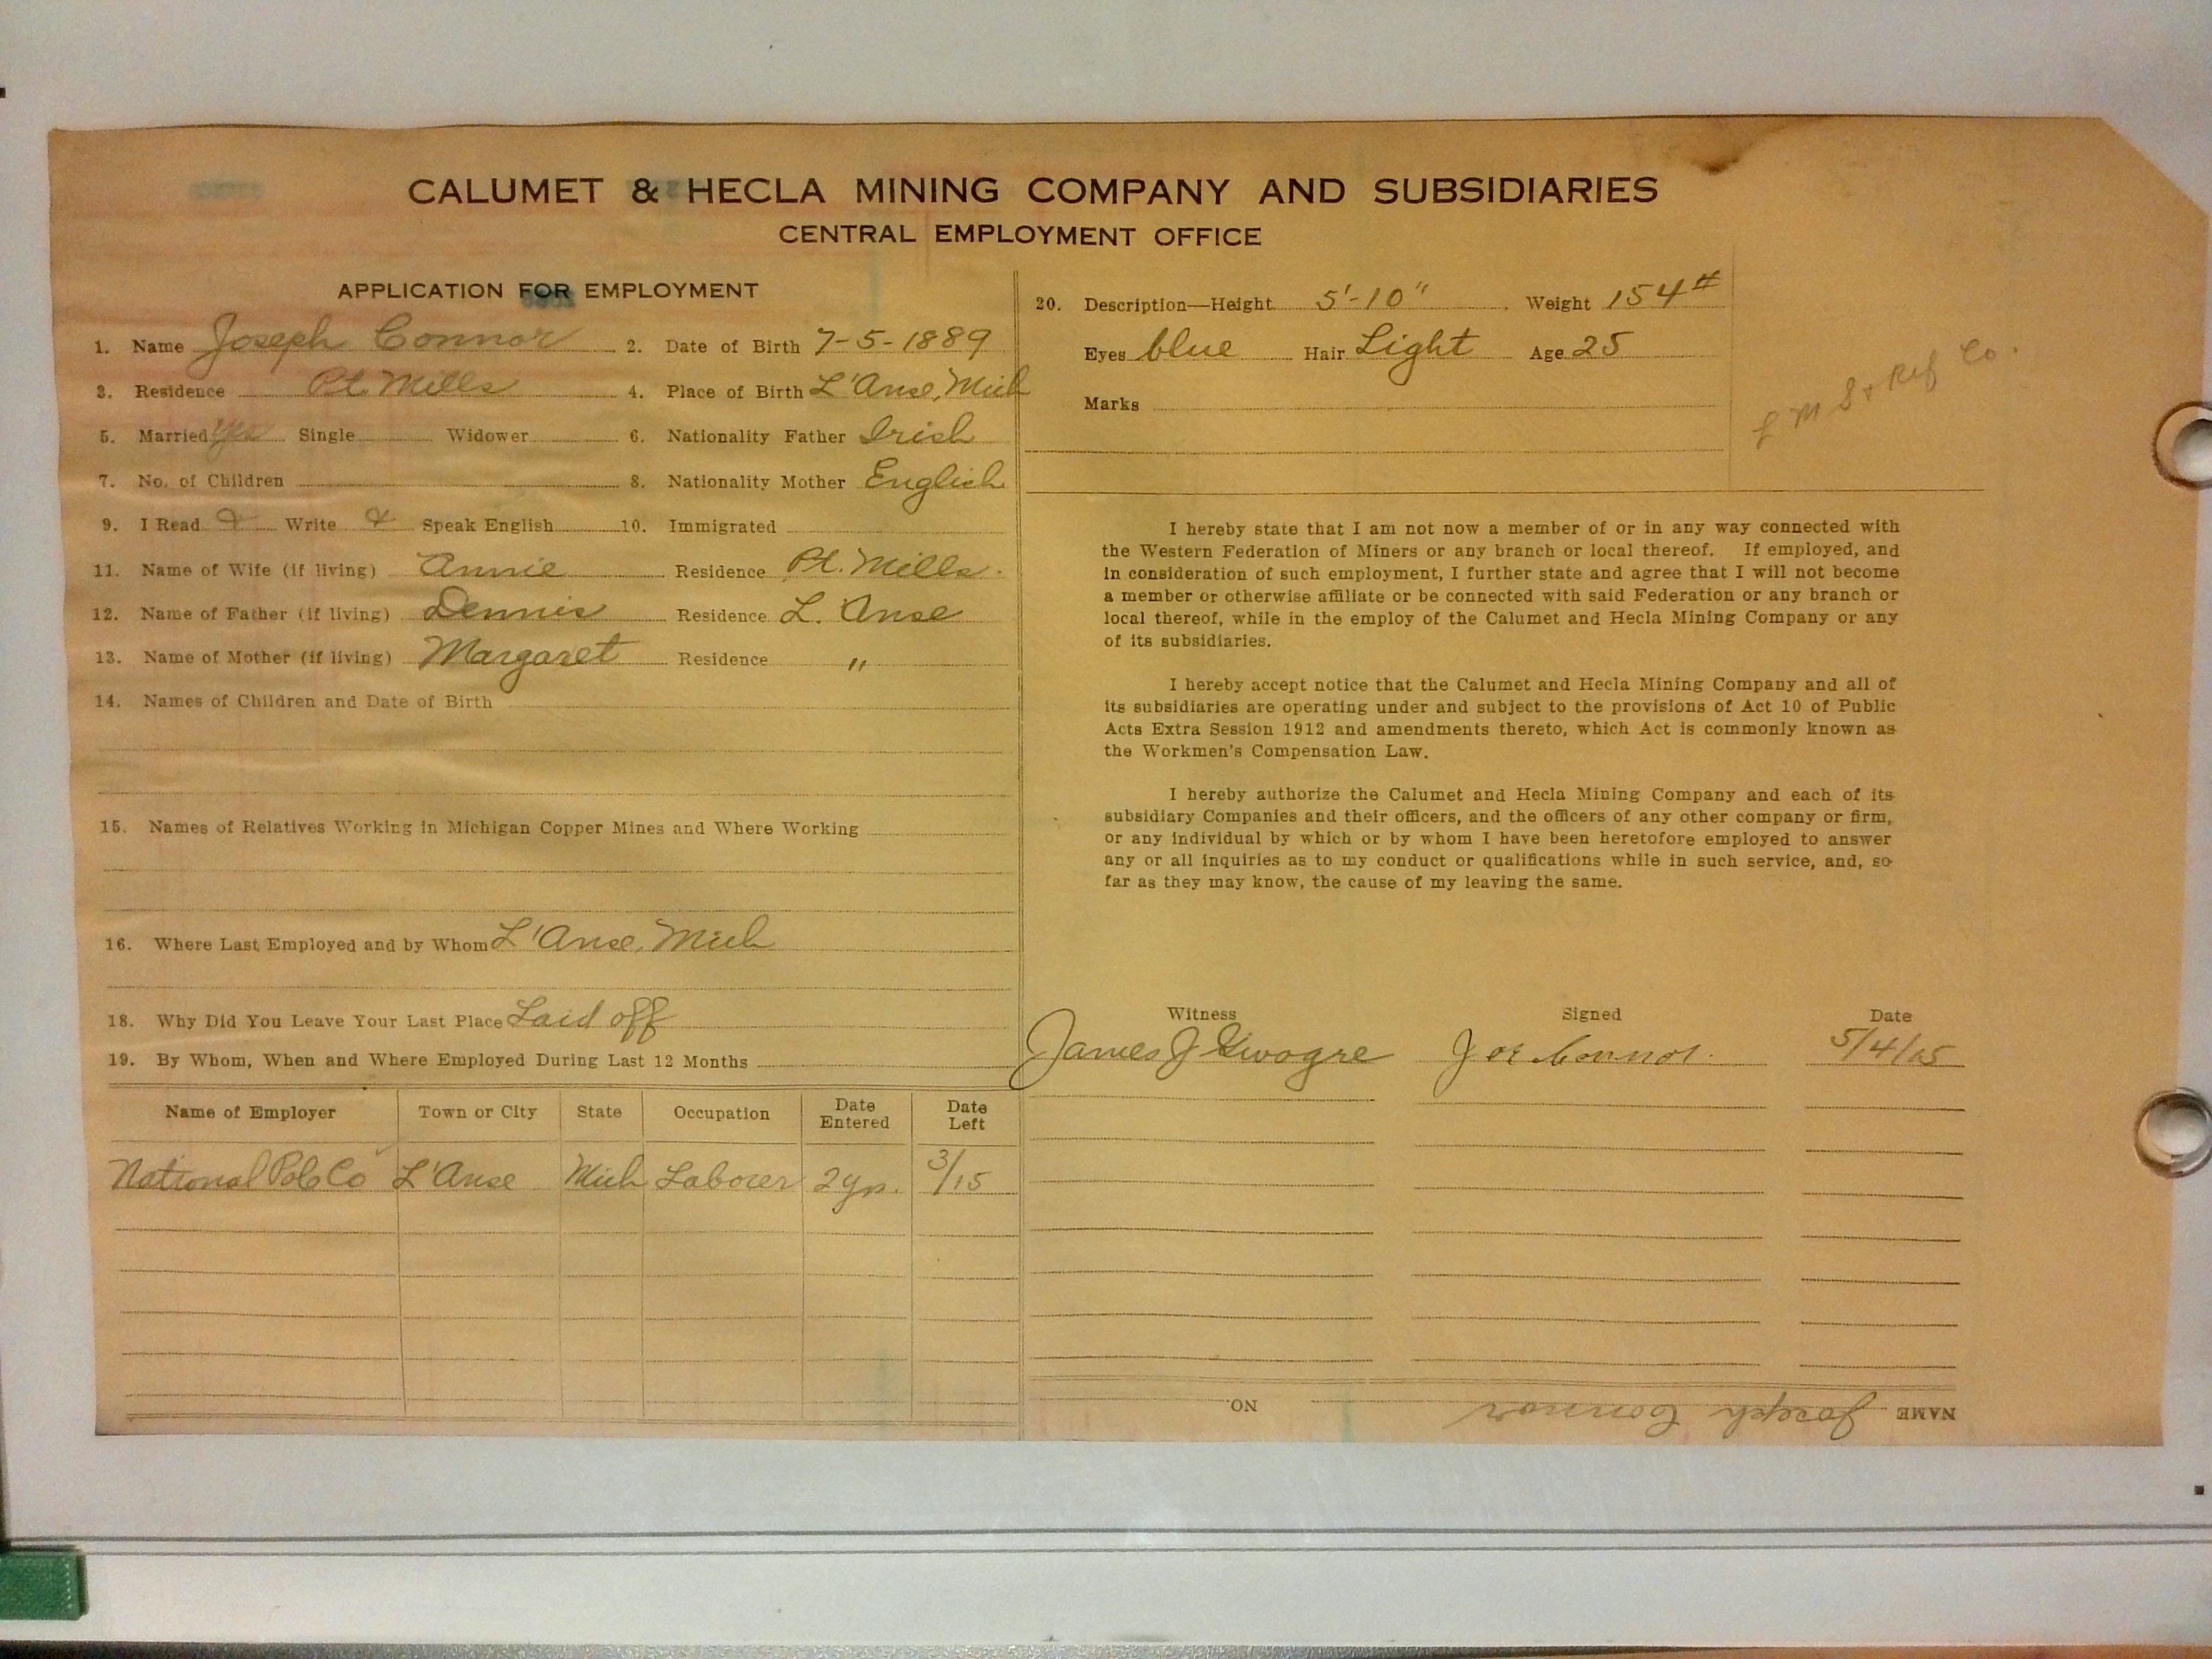 CALUMET & HECLA MINING COMPANY AND SUBSIDIARIES
CENTRAL EMPLOYMENT OFFICE
APPLICATION FOR EMPLOYMENT
1. Name Joseph Connor 2. Date of Birth 7-5-1889
3. Residence Pt. Mills 4. Place of Birth L'Anse, Mich
5. Married Yes Single Widower 6. Nationality Father Irish
7. No. of Children 8. Nationality Mother English
9. I Read & Write & Speak English 10. Immigrated
11. Name of Wife (if living) Annie Residence Pt. Mills.
12. Name of Father (if living) Dennis Residence L. Anse
13. Name of Mother (if living) Margaret Residence "
14. Names of Children and Date of Birth
15. Names of Relatives Working in Michigan Copper Mines and Where Working
16. Where Last Employed and by Whom L'Anse, Mich
18. Why Did You Leave Your Last Place Laid off
19. By Whom, When and Where Employed During Last 12 Months
Name of Employer Town or City State Occupation Date Entered Date Left
National Pole Co L'Anse Mich Laborer 2 yrs. 3/15
20. Description—Height 5'-10" Weight 154#
Eyes blue Hair Light Age 25
Marks
S & Ref Co.
I hereby state that I am not now a member of or in any way connected with
the Western Federation of Miners or any branch or local thereof. If employed, and
in consideration of such employment, I further state and agree that I will not become
a member or otherwise affiliate or be connected with said Federation or any branch or
local thereof, while in the employ of the Calumet and Hecla Mining Company or any
of its subsidiaries.
I hereby accept notice that the Calumet and Hecla Mining Company and all of
its subsidiaries are operating under and subject to the provisions of Act 10 of Public
Acts Extra Session 1912 and amendments thereto, which Act is commonly known as
the Workmen's Compensation Law.
I hereby authorize the Calumet and Hecla Mining Company and each of its
subsidiary Companies and their officers, and the officers of any other company or firm,
or any individual by which or by whom I have been heretofore employed to answer
any or all inquiries as to my conduct or qualifications while in such service, and, so
far as they may know, the cause of my leaving the same.
Witness Signed Date
James J Joe Connor. 5/4/15
NAME Joseph Connor NO.